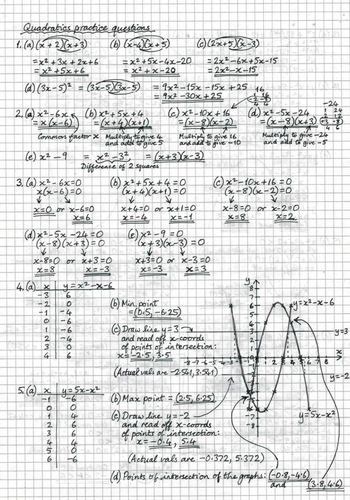 Quadratics practice questions
1.(a) (x+2)(x+3) (b) (x-4)(x+5) (c) (2x+5)(x-3)
= x²+3x+2x+6 = x²+5x-4x-20 = 2x²-6x+5x-15
= x²+5x+6 = x²+x-20 = 2x²-x-15
(d) (3x-5)² = (3x-5)(3x-5) = 9x²-15x-15x+25
= 9x²-30x+25
2.(a) x²-6x (b) x²+5x+4 (c) x²-10x+16 (d) x²-5x-24
= x(x-6) = (x+4)(x+1) = (x-8)(x-2) = (x-8)(x+3)
Common factor x Multiply to give 4 Multiply to give 16 Multiply to give -24
and add to give 5 and add to give -10 and add to give -5
(e) x²-9 = x²-3² = (x+3)(x-3)
Difference of 2 squares
3.(a) x²-6x=0 (b) x²+5x+4=0 (c) x²-10x+16=0
x(x-6)=0 (x+4)(x+1)=0 (x-8)(x-2)=0
x=0 or x-6=0 x+4=0 or x+1=0 x-8=0 or x-2=0
x=6 x=-4 x=-1 x=8 x=2
(d) x²-5x-24=0 (e) x²-9=0
(x-8)(x+3)=0 (x+3)(x-3)=0
x-8=0 or x+3=0 x+3=0 or x-3=0
x=8 x=-3 x=-3 x=3
4.(a) x y=x²-x-6
-3 6
-2 0
-1 -4
0 -6
1 -6
2 -4
3 0
4 6
(b) Min. point
= (0.5,-6.25)
(c) Draw line y=3
and read off x-coords
of points of intersection:
x=-2.5, 3.5
(Actual vals are -2.541, 3.541)
y=x²-x-6
y=3
y=-2
y=5x-x²
5.(a) x y=5x-x²
-1 -6
0 0
1 4
2 6
3 6
4 4
5 0
6 -6
(b) Max point = (2.5, 6.25)
(c) Draw line y=-2
and read off x-coords
of points of intersection:
x=-0.4, 5.4
(Actual vals are -0.372, 5.372)
(d) Points of intersection of the graphs: (-0.8,-4.6)
and (3.8, 4.6)